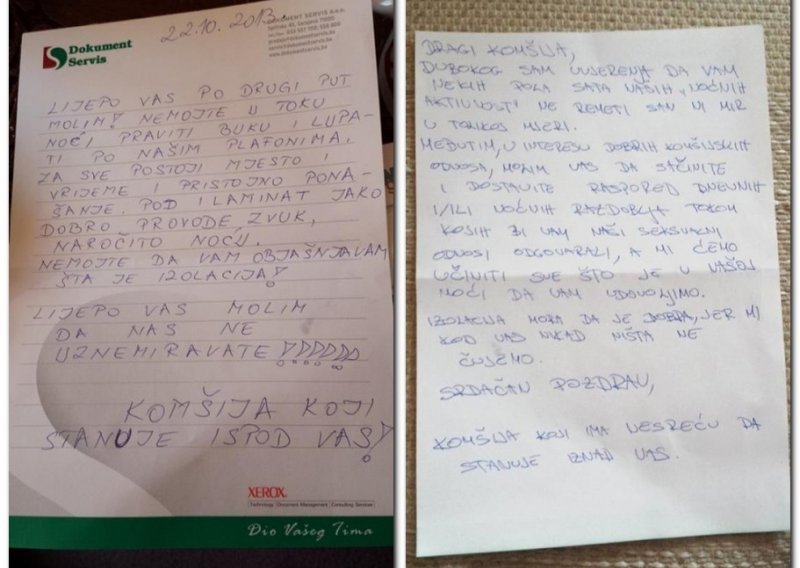 Dokument
Servis
22.10.2013.
DOKUMENT SERVIS d.o.o.
LIJEPO VAS PO DRUGI PUT
MOLIM! NEMOJTE U TOKU
NOĆI PRAVITI BUKU I LUPA-
TI PO NAŠIM PLAFONIMA.
ZA SVE POSTOJI MJESTO I
VRIJEME I PRISTOJNO PONA-
ŠANJE. POD I LAMINAT JAKO
DOBRO PROVODE ZVUK,
NAROČITO NOĆU.
NEMOJTE DA VAM OBJAŠNJAVAM
ŠTA JE IZOLACIJA!
LIJEPO VAS MOLIM
DA NAS NE
UZNEMIRAVATE!!!!!!!
KOMŠIJA KOJI
STANUJE ISPOD VAS!
XEROX.
Technology Document Management Consulting Services
Dio Vašeg Tima
DRAGI KOMŠIJA,
DUBOKOG SAM UVJERENJA DA VAM
NEKIH POLA SATA NAŠIH "NOĆNIH
AKTIVNOSTI" NE REMETI SAN NI MIR
U TOLIKOJ MJERI.
MEĐUTIM, U INTERESU DOBRIH KOMŠIJSKIH
ODNOSA, MOLIM VAS DA SAČINITE
I DOSTAVITE RASPORED DNEVNIH
I/ILI NOĆNIH RAZDOBLJA TOKOM
KOJIH BI VAM NAŠI SEKSUALNI
ODNOSI ODGOVARALI, A MI ĆEMO
UČINITI SVE ŠTO JE U NAŠOJ
MOĆI DA VAM UDOVOLJIMO.
IZOLACIJA MORA DA JE DOBRA, JER MI
KOD VAS NIKAD NIŠTA NE
ČUJEMO.
SRDAČAN POZDRAV,
KOMŠIJA KOJI IMA NESREĆU DA
STANUJE IZNAD VAS.